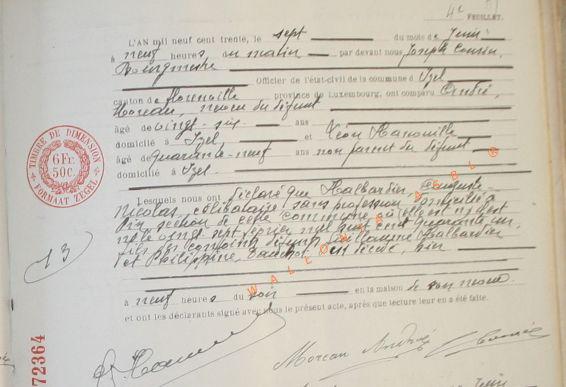 4e
FEUILLET.
L'AN mil neuf cent trente, le sept du mois de Juin
à neuf heures du matin par devant nous Joseph
Bourgmestre
Officier de l'état-civil de la commune d'Izel
canton de Florenville province de Luxembourg, ont comparu André
Moreau, neveu du défunt
âgé de vingt-six ans
domicilié à Izel, et Léon
âgé de quarante-neuf ans non parent du défunt
domicilié à Izel.
Lesquels nous ont déclaré que Halbardier, Auguste
Nicolas, célibataire sans profession domicilié à
section de cette commune, où il est né le
vingt sept février mil huit cent quarante
fils des conjoints défunts Guillaume Halbardier
et Philippine, est décédé, hier
à neuf heures du soir en la maison de son neveu
et ont les déclarants signé avec nous le présent acte, après que lecture leur en a été faite.
TIMBRE DE DIMENSION
6Fr.
50C.
FORMAAT ZEGEL
13
72364
WALLONIA ASBL ®
Moreau André
Juin